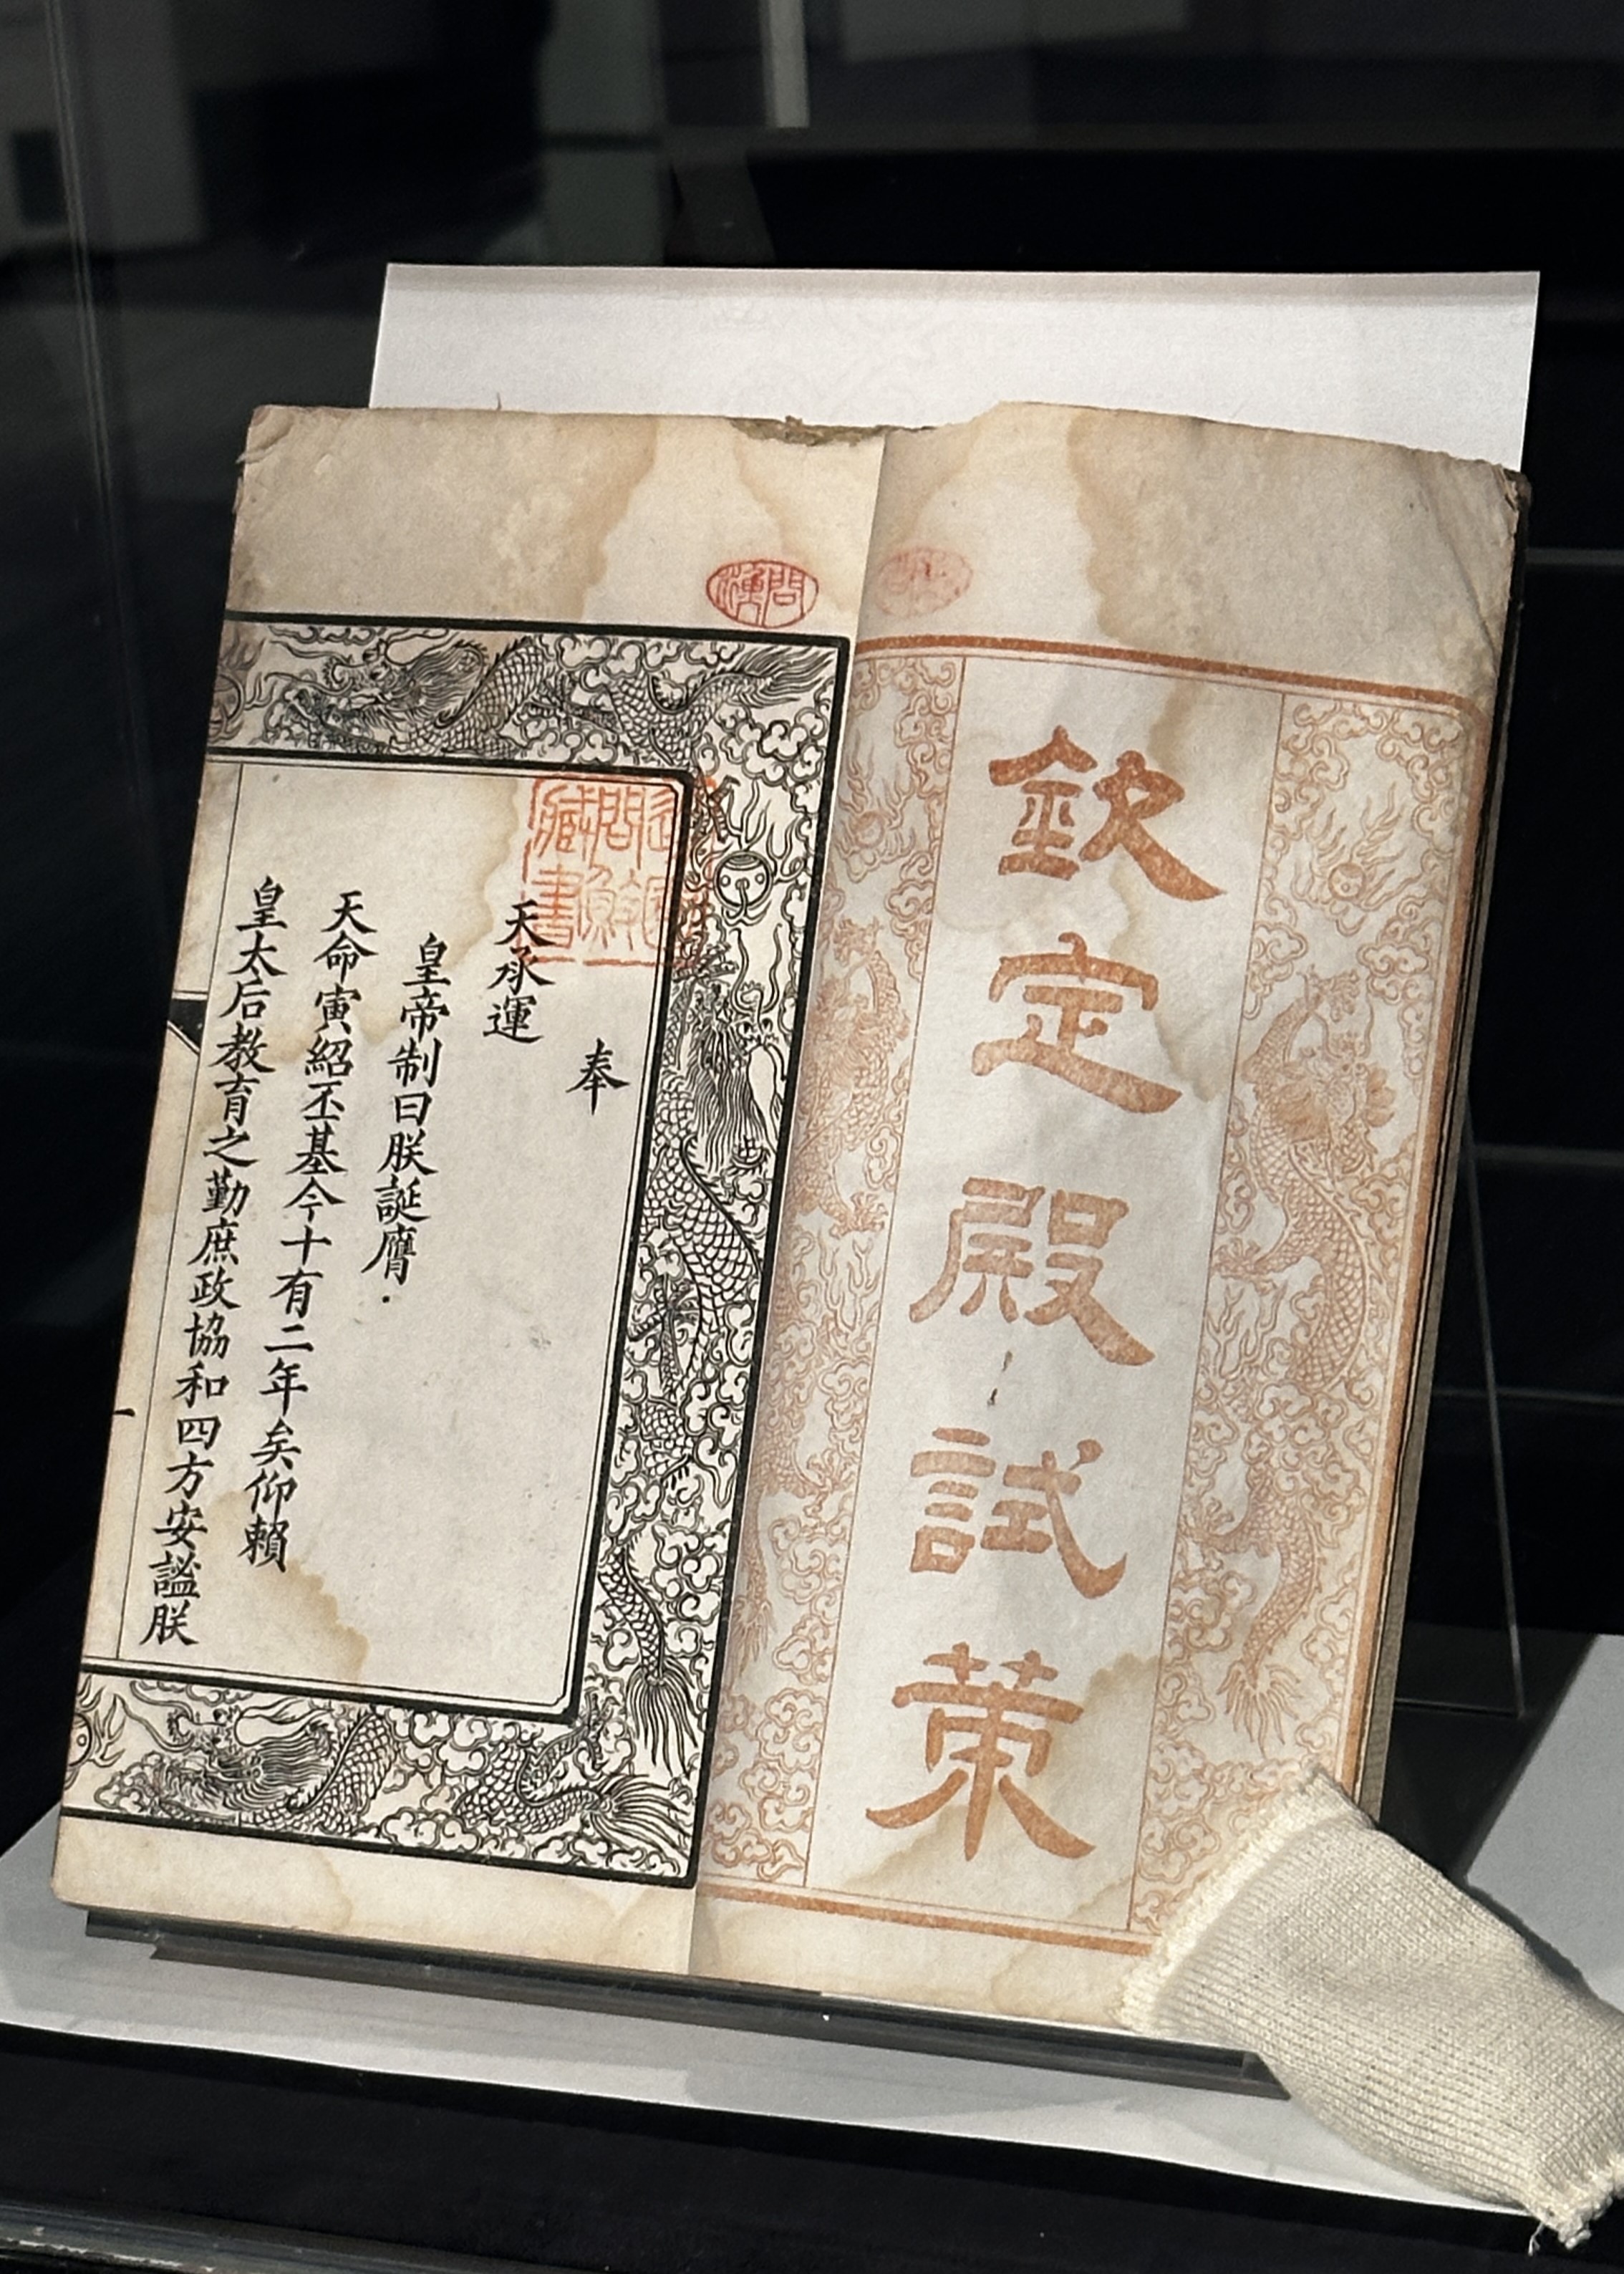 欽定殿試策
奉
天承運
皇帝制曰朕誕膺
天命寅紹丕基今十有二年矣仰賴
皇太后教育之勤庶政協和四方安謐朕
一
問漁